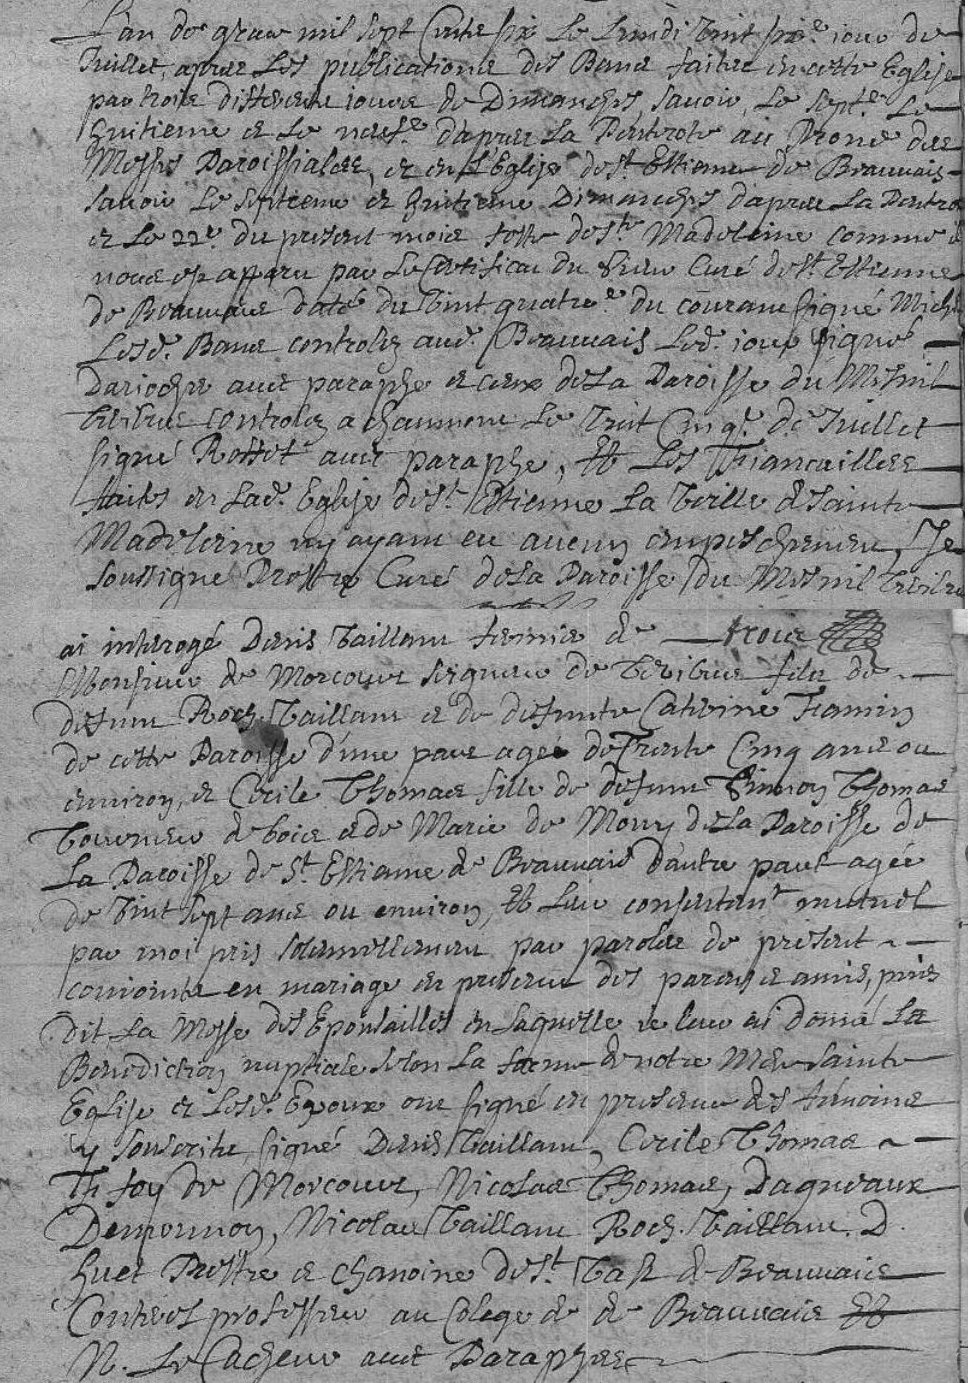 L'an de grace mil sept Cents six Le Lundi vint sixe. iour de
Juillet, apres Les publications des Bans faites en cette Eglise
par trois differens iours de Dimanches, savoir, Le septe. Le
huitieme et Le neufe. d'apres La Pentecote au Prone des
Messes Paroissiales, et en l'Eglise de St. Estienne de Beauvais
savoir Le septieme et huitieme Dimanches d'apres La Penteco
et Le 22e. du present mois feste de ste. Madeleine comme il
nous est apparu par Le Certificat du sieur Curé de St. Estienne
de Beauvais daté du vint quatree. du courant signé Mich
Lesd. Bans controlez aud. Beauvais Led. iour signé
Darioche avec paraphe et ceux de La Paroisse du Mesnil
Teribus controlez a chaumont Le vint Cinqe. de Juillet
signé avec paraphe, et Les Fiancailles
faites en Lad. Eglise de St. Estienne La veille de sainte
Madeleine ny ayant eu aucun empeschement, Je
soussigné Prestre Curé de La Paroisse du Mesnil Teribu
ai interogé Denis Vaillant fermier de
Monsieur de Morcourt seigneur de Teribus fils de
defunt Roch Vaillant et de defunte Caterine Framin
de cette Paroisse d'une part agé de Trente Cinq ans ou
environ, et Cecile Thomas fille de defunt Simon Thomas
Tourneur de bois et de Marie de Mouy de La Paroisse de
La Paroisse de St. Estienne de Beauvais d'autre part agée
de vint sept ans ou environ, et Leur consentant mutuel
par moi pris solemnellement par paroles de present
conioints en mariage en presence des parens et amis, puis
dit La Messe des Epousailles en laquelle ie leur ai donné La
Benediction nuptiale selon La forme de notre Mere sainte
Eglise et Lesd. Epoux ont signé en presence des témoins
y souscrits, signé Denis Vaillant, Cecile Thomas
Th foy de Morcourt, Nicolas Thomas, Dagneaux
Nicolas Vaillant Roch Vaillant D.
huet Prestre et chanoine de St. Vast de Beauvais
professeur au Colege de de Beauvais et
N. Le Cacheur avec Paraphes